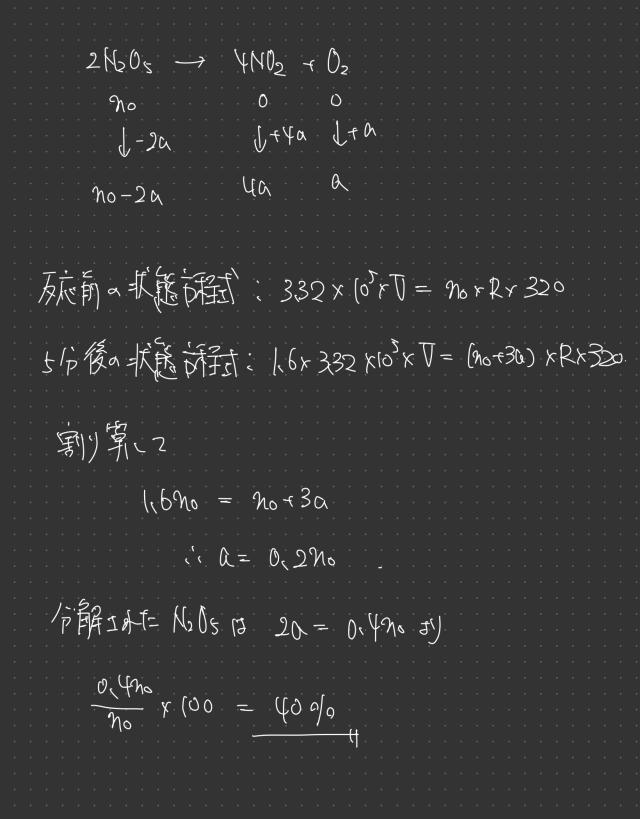 2N₂O₅ → 4NO₂ + O₂
n₀ 0 0
↓-2a ↓+4a ↓+a
n₀-2a 4a a
反応前の状態方程式: 3.32×10⁵×V = n₀×R×320
5分後の状態方程式: 1.6×3.32×10⁵×V = (n₀+3a)×R×320
割り算して
1.6n₀ = n₀+3a
∴ a = 0.2n₀.
分解された N₂O₅は 2a = 0.4n₀ より
0.4n₀/n₀ × 100 = 40%